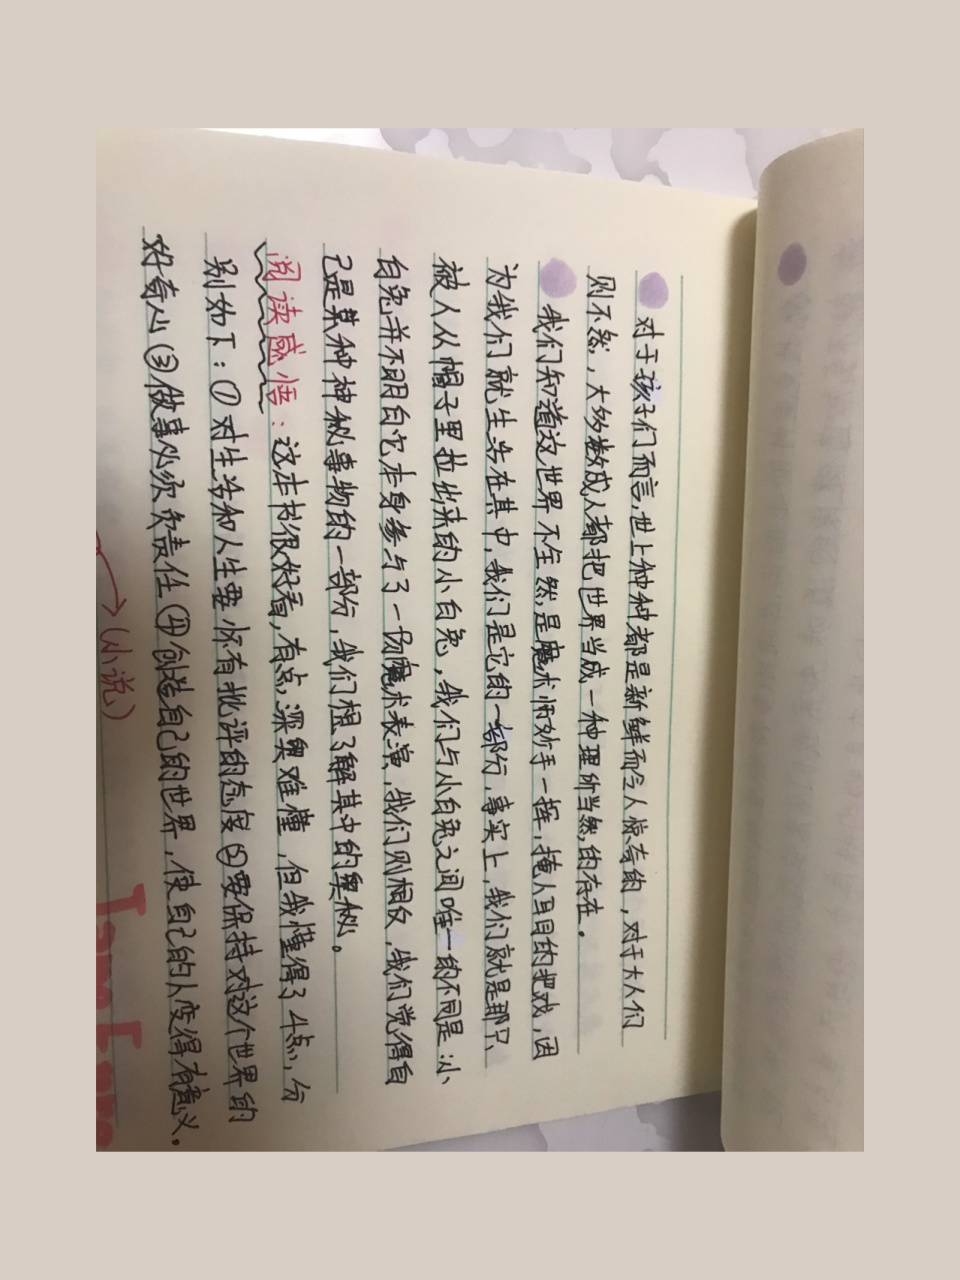 对于孩子们而言,世上种种都是新鲜而令人惊奇的,对于大人们
则不然,大多数成人都把世界当成一种理所当然的存在。
我们知道这世界不全然是魔术师妙手一挥,掩人耳目的把戏,因
为我们就生活在其中,我们是它的一部分,事实上,我们就是那只
被人从帽子里拉出来的小白兔,我们与小白兔之间唯一的不同是:小
白兔并不明白它本身参与了一场魔术表演,我们则相反,我们觉得自
己是某种神秘事物的一部分,我们想了解其中的奥秘。
阅读感悟:这本书很好看,有点深奥难懂,但我懂得了4点,分
别如下:①对生活和人生要怀有批评的态度②要保持对这个世界的
好奇心③做事必须负责任④创造自己的世界,使自己的人变得有意义。
(小说)